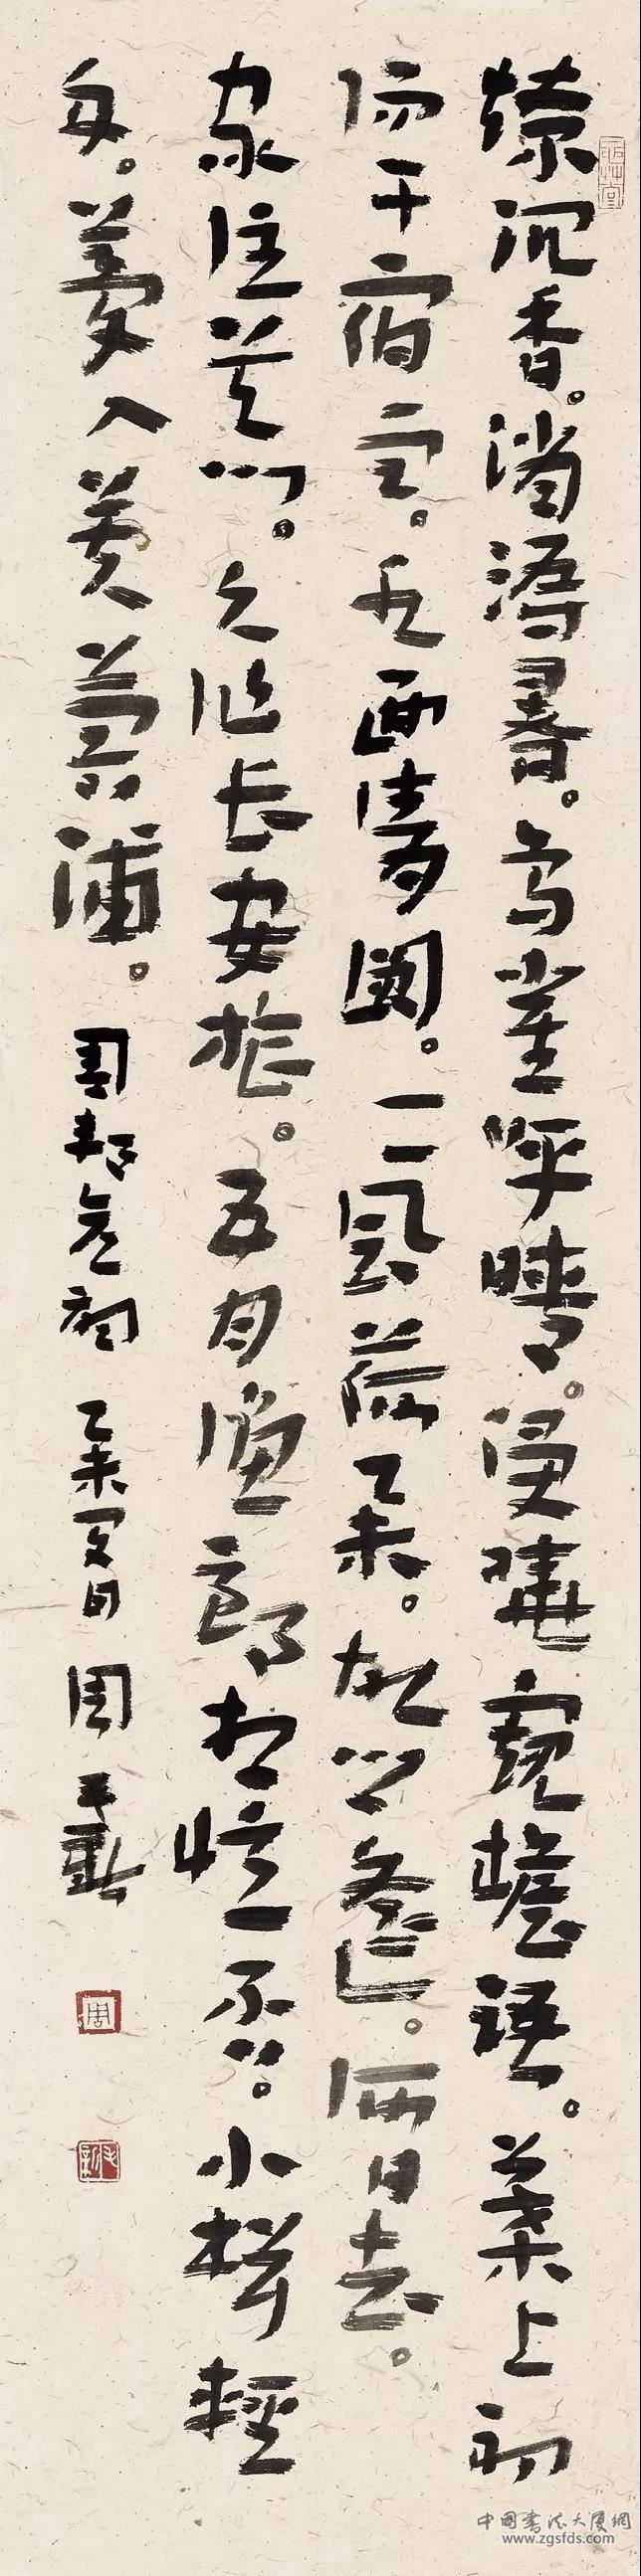 燎沉香。消溽暑。鳥雀呼晴。侵曉窺檐語。葉上初
陽干宿雨。水面清圓。一一風荷舉。故鄉遙。何日去。
家住吳門。久作長安旅。五月漁郎相憶否。小楫輕
舟。夢入芙蓉浦。周邦彦詞 乙未夏日 周
周
中國書法大廈網
www.zgsfds.com